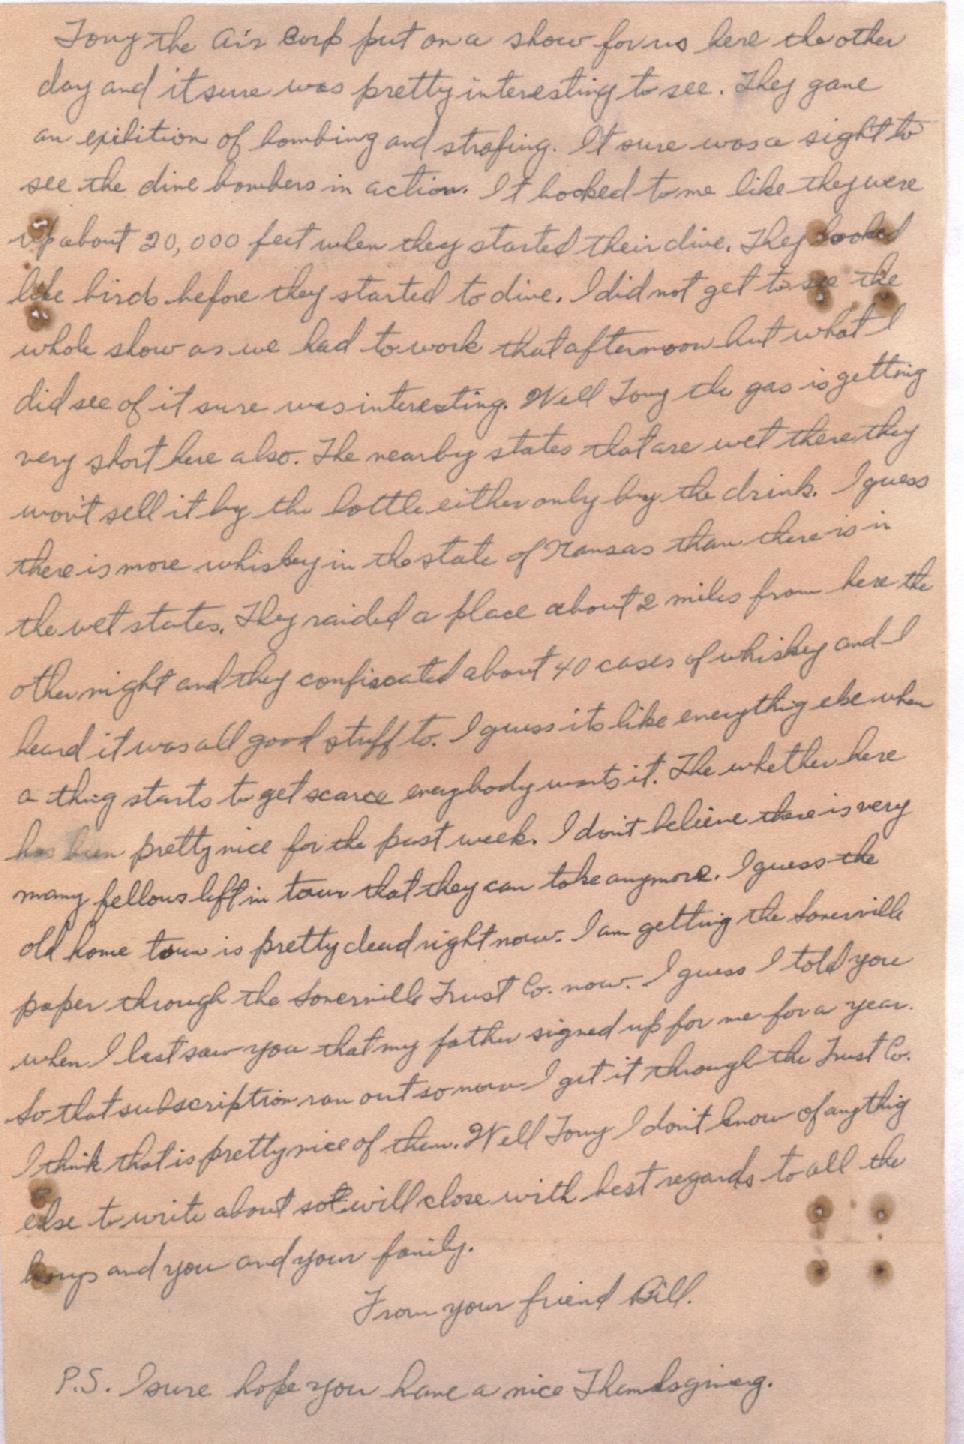 Tony the Air Corp put on a show for us here the other
day and it sure was pretty interesting to see. They gave
an exibition of bombing and strafing. It sure was a sight to
see the dive bombers in action. It looked to me like they were
up about 20,000 feet when they started their dive. They looked
like birds before they started to dive. I did not get to see the
whole show as we had to work that afternoon but what I
did see of it sure was interesting. Well Tony the gas is getting
very short here also. The nearby states that are wet there they
won't sell it by the bottle either only by the drink. I guess
there is more whiskey in the state of Kansas than there is in
the wet states. They raided a place about 2 miles from here the
other night and they confiscated about 40 cases of whiskey and I
heard it was all good stuff to. I guess its like everything else when
a thing starts to get scarce everybody wants it. The whether here
has been pretty nice for the past week. I don't believe there is very
many fellows left in town that they can take anymore. I guess the
old home town is pretty dead right now. I am getting the Somerville
paper through the Somerville Trust Co. now. I guess I told you
when I last saw you that my father signed up for me for a year.
So that subscription ran out so now I get it through the Trust Co.
I think that is pretty nice of them. Well Tony I don't know of anythig
else to write about so I will close with best regards to all the
boys and you and your family.
From your friend Bill.
P.S. I sure hope you have a nice Thanksgiving.